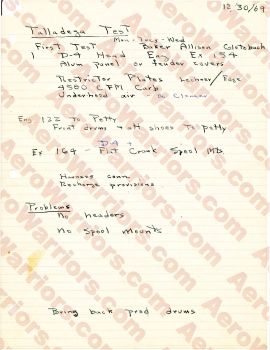 12/30/69
Talladega Test
Mon-Tues-Wed
First Test Baker Allison Glotzbach
1 D-4 Head Eng Ex 154
Alum panel on fender covers
Restrictor Plates Lechner/Page
4500 CFM Carb
Underhood air
Eng 132 To Petty
Front drums + shoes to Petty
D-4 +
Ex 164 - Flat Crank Spool Mts
Harness conn.
Recharge provisions
Problems
No headers
No spool mounts
Bring back prod drums
AeroWarriors.com